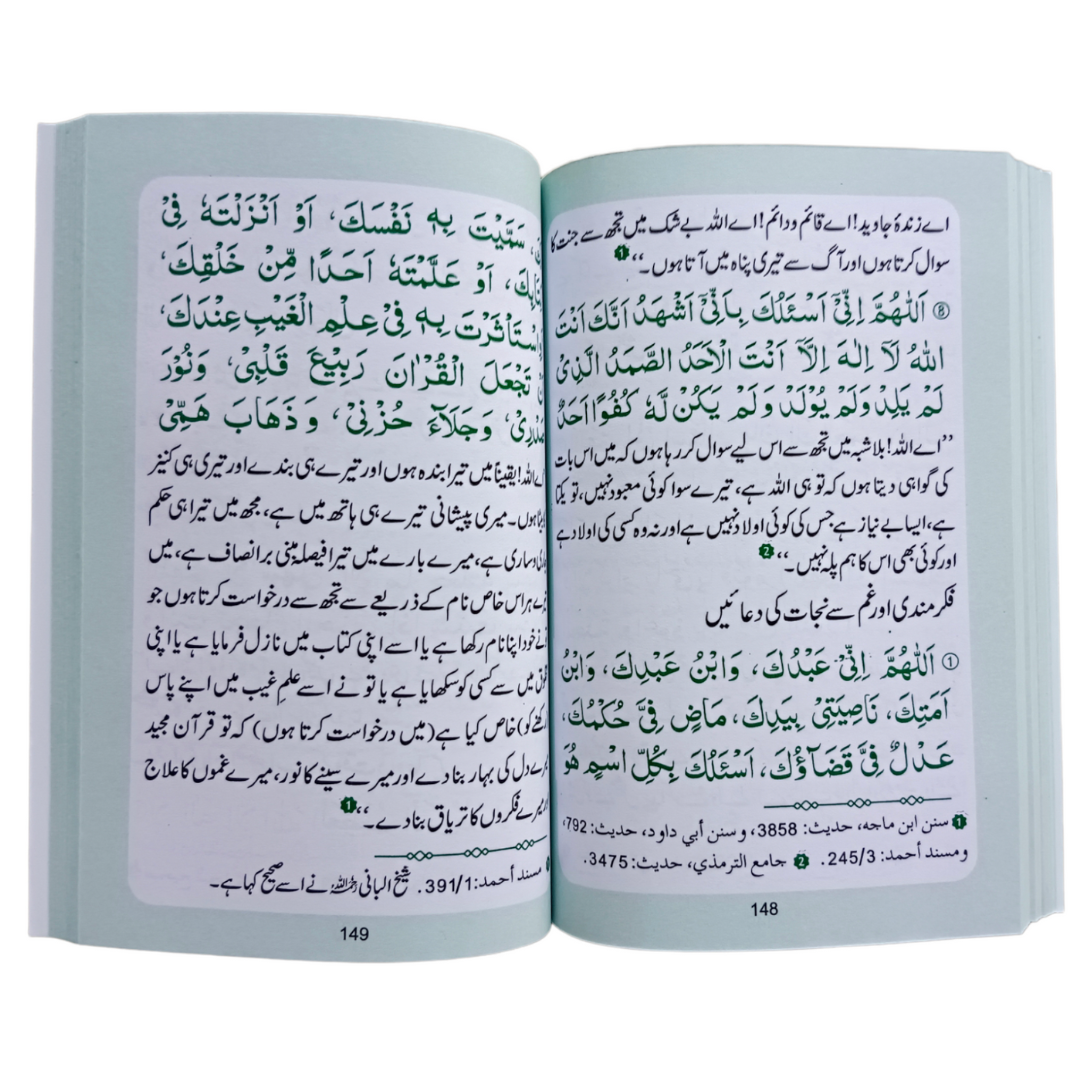 اے زندۂ جاوید! اے قائم و دائم! اے اللہ بے شک میں تجھ سے جنت کا
سوال کرتا ہوں اور آگ سے تیری پناہ میں آتا ہوں۔‘‘ 1
⑧ اَللّٰهُمَّ اِنِّيْٓ اَسْئَلُكَ بِاَنِّيْٓ اَشْهَدُ اَنَّكَ اَنْتَ
اللهُ لَآ اِلٰهَ اِلَّآ اَنْتَ الْاَحَدُ الصَّمَدُ الَّذِيْ
لَمْ يَلِدْ وَلَمْ يُوْلَدْ وَلَمْ يَكُنْ لَّهٗ كُفُوًا اَحَدٌ
’’اے اللہ! بلاشبہ میں تجھ سے اس لیے سوال کر رہا ہوں کہ میں اس بات
کی گواہی دیتا ہوں کہ تو ہی اللہ ہے، تیرے سوا کوئی معبود نہیں، تو یکتا
ہے، ایسا بے نیاز ہے جس کی کوئی اولاد نہیں ہے اور نہ وہ کسی کی اولاد ہے
اور کوئی بھی اس کا ہم پلہ نہیں۔‘‘ 2
فکر مندی اور غم سے نجات کی دعائیں
① اَللّٰهُمَّ اِنِّيْ عَبْدُكَ، وَابْنُ عَبْدِكَ، وَابْنُ
اَمَتِكَ، نَاصِيَتِيْ بِيَدِكَ، مَاضٍ فِيَّ حُكْمُكَ،
عَدْلٌ فِيَّ قَضَآؤُكَ، اَسْئَلُكَ بِكُلِّ اسْمٍ هُوَ
1 سنن ابن ماجه، حديث: 3858، و سنن أبي داود، حديث: 792،
و مسند أحمد: 245/3. 2 جامع الترمذي، حديث: 3475.
148
سَمَّيْتَ بِهٖ نَفْسَكَ، اَوْ اَنْزَلْتَهٗ فِيْ
اَوْ عَلَّمْتَهٗ اَحَدًا مِّنْ خَلْقِكَ،
اسْتَاْثَرْتَ بِهٖ فِيْ عِلْمِ الْغَيْبِ عِنْدَكَ،
تَجْعَلَ الْقُرْاٰنَ رَبِيْعَ قَلْبِيْ، وَنُوْرَ
وَجَلَآءَ حُزْنِيْ، وَذَهَابَ هَمِّيْ
اے اللہ! یقیناً میں تیرا بندہ ہوں اور تیرے ہی بندے اور تیری ہی کنیز
ہوں۔ میری پیشانی تیرے ہی ہاتھ میں ہے، مجھ میں تیرا ہی حکم
و ساری ہے، میرے بارے میں تیرا فیصلہ مبنی بر انصاف ہے، میں
ہر اس خاص نام کے ذریعے سے تجھ سے درخواست کرتا ہوں جو
نے خود اپنا نام رکھا ہے یا اسے اپنی کتاب میں نازل فرمایا ہے یا اپنی
میں سے کسی کو سکھایا ہے یا تو نے اسے علمِ غیب میں اپنے پاس
کو) خاص کیا ہے (میں درخواست کرتا ہوں) کہ تو قرآن مجید
دل کی بہار بنا دے اور میرے سینے کا نور، میرے غموں کا علاج
میرے فکروں کا تریاق بنا دے۔‘‘ 1
مسند أحمد: 391/1. شیخ البانی رحمہ اللہ نے اسے صحیح کہا ہے۔
149